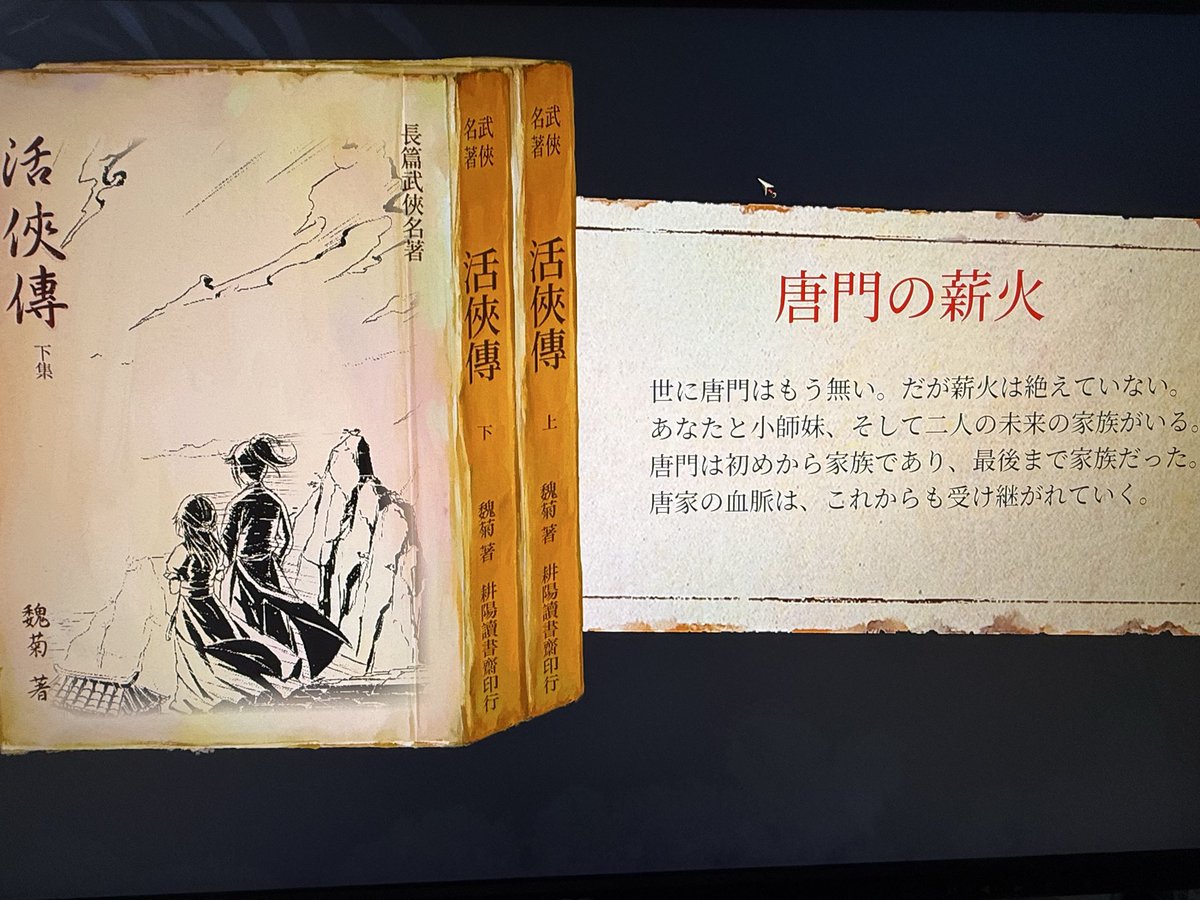 活俠傳
下集
魏菊 著
長篇武俠名著
武俠名著
活俠傳
下
魏菊 著
耕陽讀書齋印行
武俠名著
活俠傳
上
魏菊 著
耕陽讀書齋印行
唐門の薪火
世に唐門はもう無い。だが薪火は絶えていない。
あなたと小師妹、そして二人の未来の家族がいる。
唐門は初めから家族であり、最後まで家族だった。
唐家の血脈は、これからも受け継がれていく。